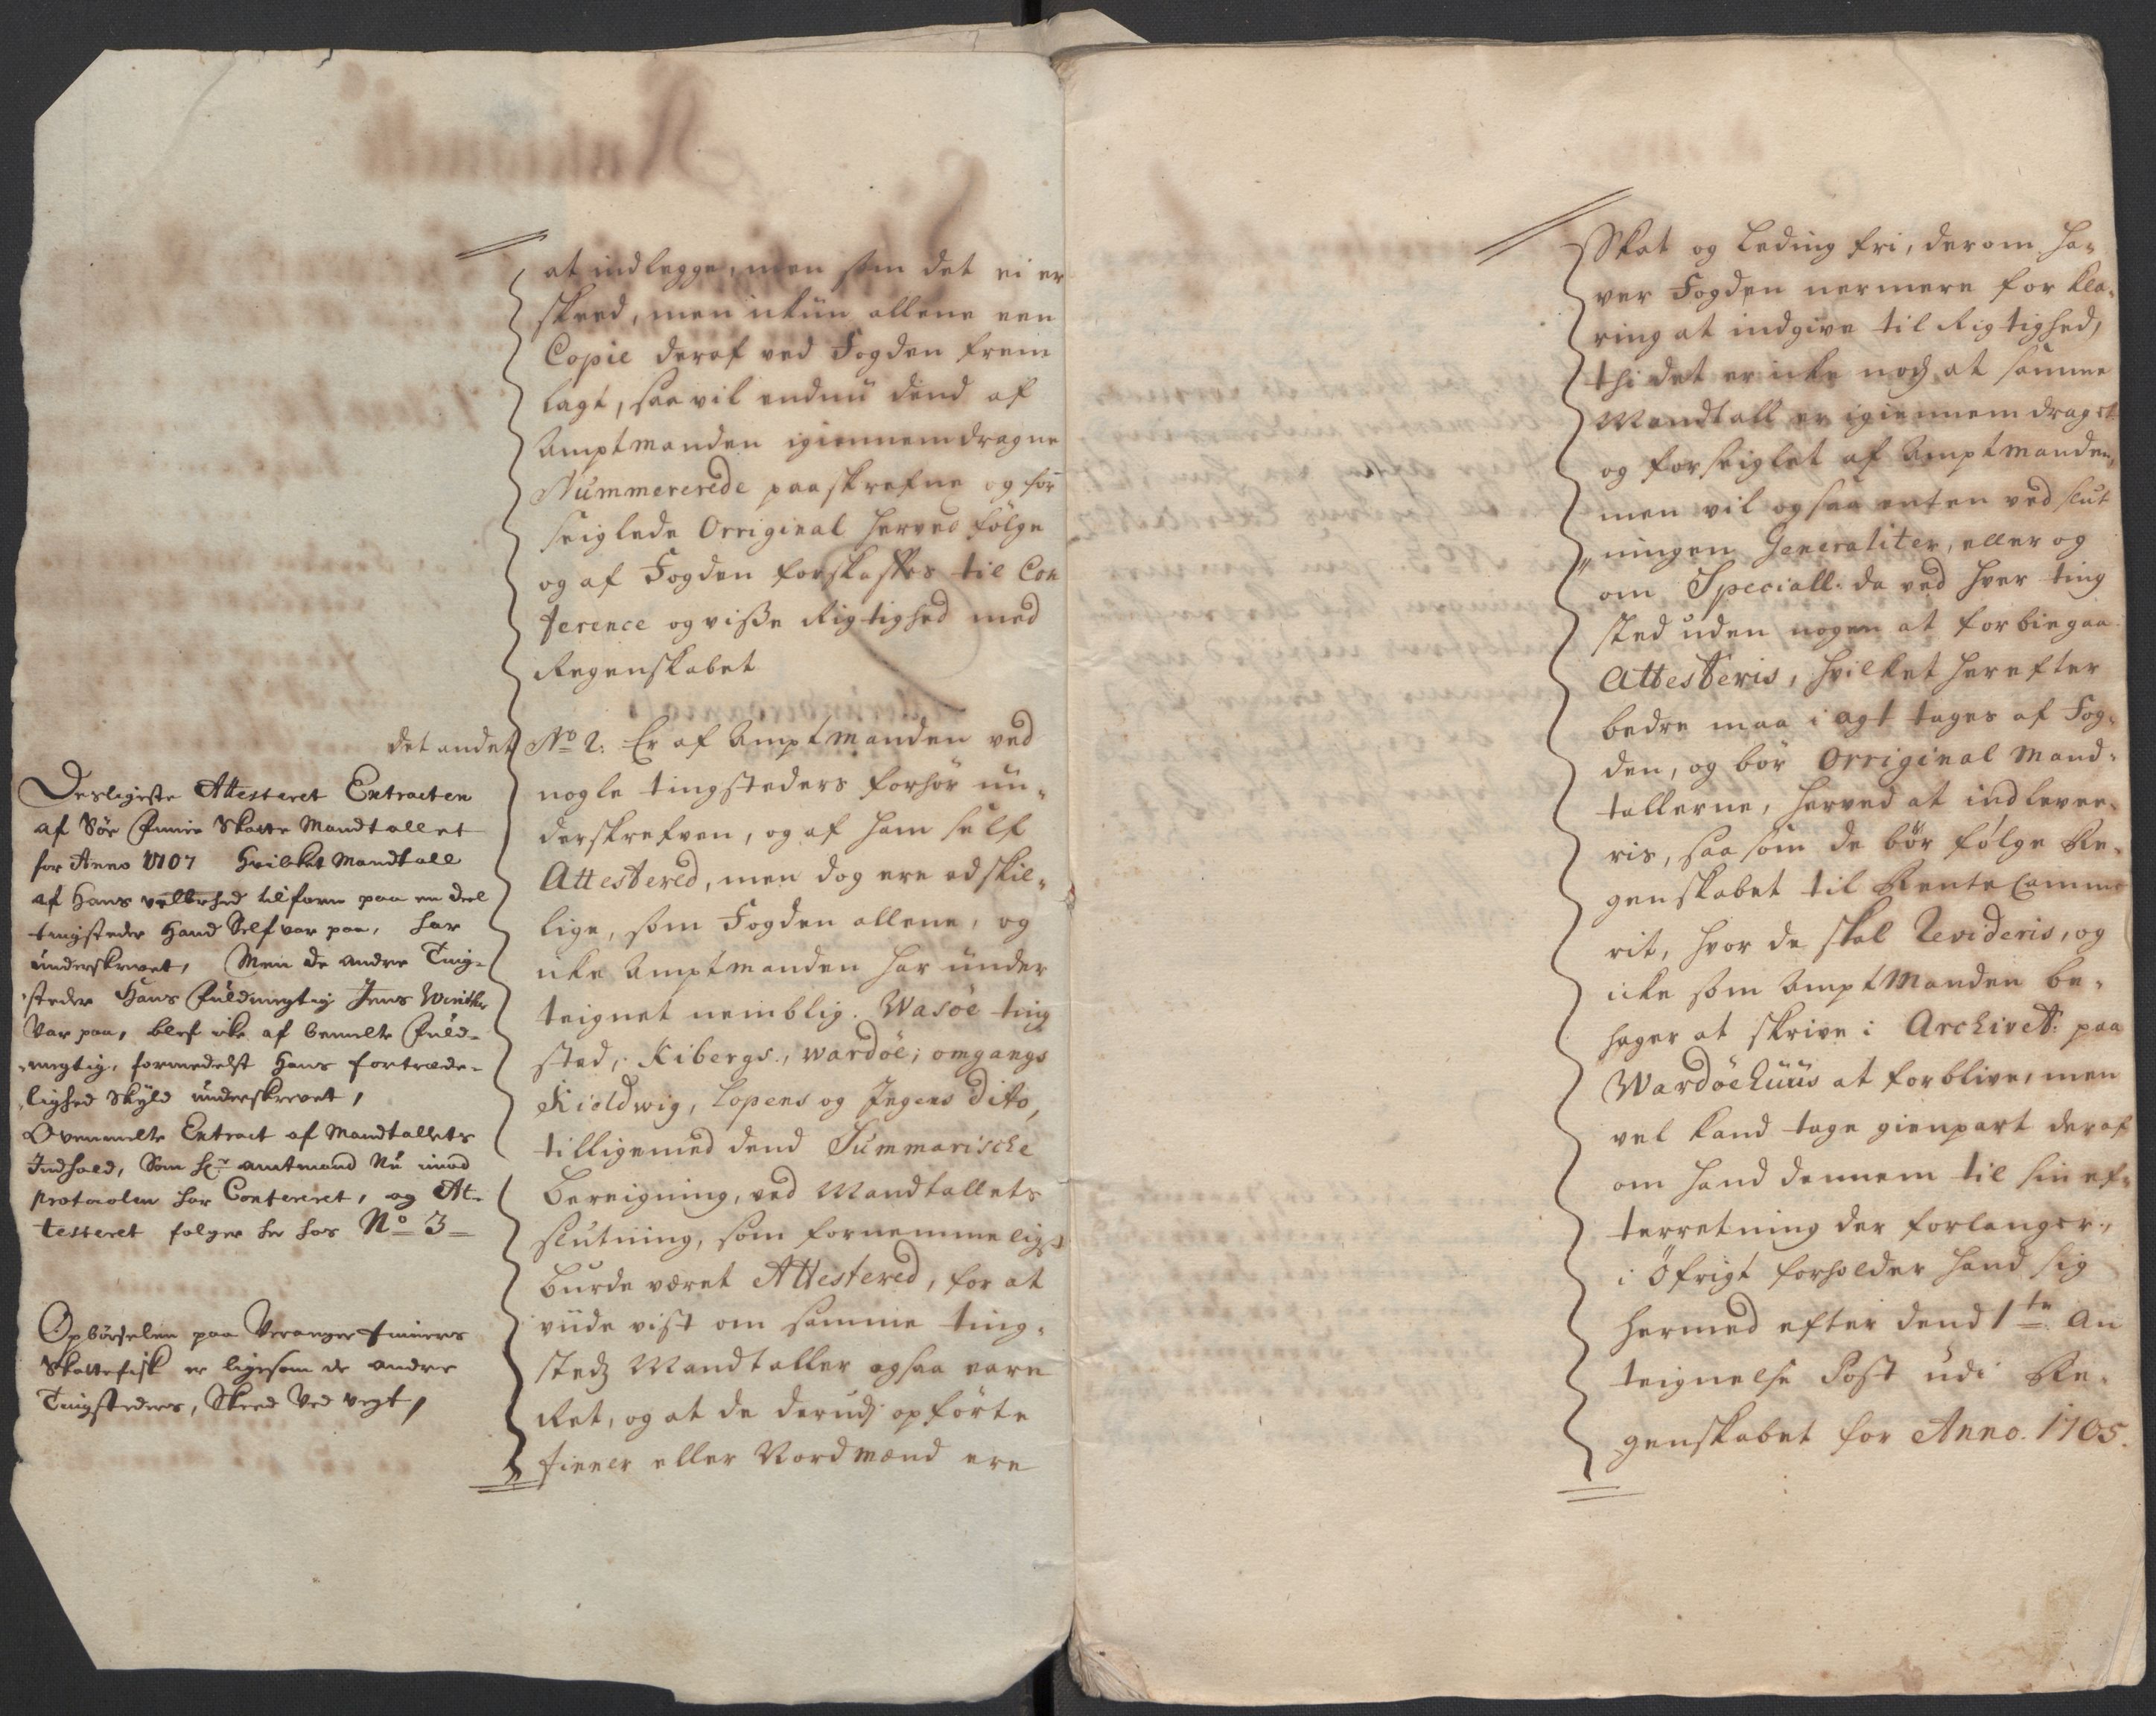 at indlegge, men som det ei er
skeed, men ickun allene een
Copie deraf ved Fogden frem
lagt, saa vil endnu dend af
Amptmanden igiennemdragne
Nummererede paaskrefne og for
seiglede Orriginal herved følge
og af Fogden forskaffes til Con
ference og visse Rigtighed med
Regenskabet
No 2: Er af Amptmanden ved
nogle tingsteders forhør un-
derskrefven, og af ham self
Attestered, men dog ere adskil-
lige, som Fogden allene, og
icke Amptmanden har under
teignet nemblig. Wasöe ting
sted, Kibergs., Wardöe, omgangs
Kioldwig, Lopens og Ingens dito,
tilligemed dend Summarische
bereigning, ved Mandtallets
slutning, som fornemmeligst
burde været Attestered, for at
viide vist om samme ting-
stedz Mandtaller ogsaa vare
Ret, og at de derudj opførte
finner eller Nordmænd ere
det andet
Desligeste Attesteret Extracten
af Søe Finne Skatte Mandtallet
for Anno 1707 Hvilket Mandtall
af Hans velbrhed tilforn paa en deel
tingsteder Hand Self var paa, har
underskrevet, Men de andre Ting-
steder Hans Fuldmegtig Jens Winther
Var paa, blef icke af bemelte Fuld-
megtig, formedelst Hans fortræde-
lighed Skyld underskrevet,
Ovenmelte Extract af Mandtallets
Indhold, Som Hr amtmand Nu imod
protocolen har Contereret, og At-
testeret folger her hos No 3
Opbörselen paa Veranger Finners
Skattefisk er ligesom de andre
Tingsteders, Skeed Ved vegt,
Skat og Leding fri, derom ha-
ver Fogden nermere forkla-
ring at indgive til Rigtighed,
thi det er icke nock at samme
Mandtall er igiennemdraget
og forseiglet af Amptmanden,
men vil ogsaa enten ved slut
ningen Generaliter, eller og
om Speciall. da ved hver ting
sted uden nogen at forbiegaa
Attesteris, hvilket herefter
bedre maa i agt tages af Fog-
den, og bör Orriginal Mand-
tallerne, herved at indlevere-
ris, saasom de bör følge Re-
genskabet til Rente Camme
rit, hvor de skal Revideris, og
icke som Amptmanden be-
hager at skrive i Archivet: paa
Wardöehuus at forblive, men
vel kand tage gienpart deraf
om hand dennem til sin ef-
terretning der forlanger,
i Öfrigt forholder hand sig
hermed efter dend 1te An
teignelse Post udi Re-
genskabet for Anno. 1705.